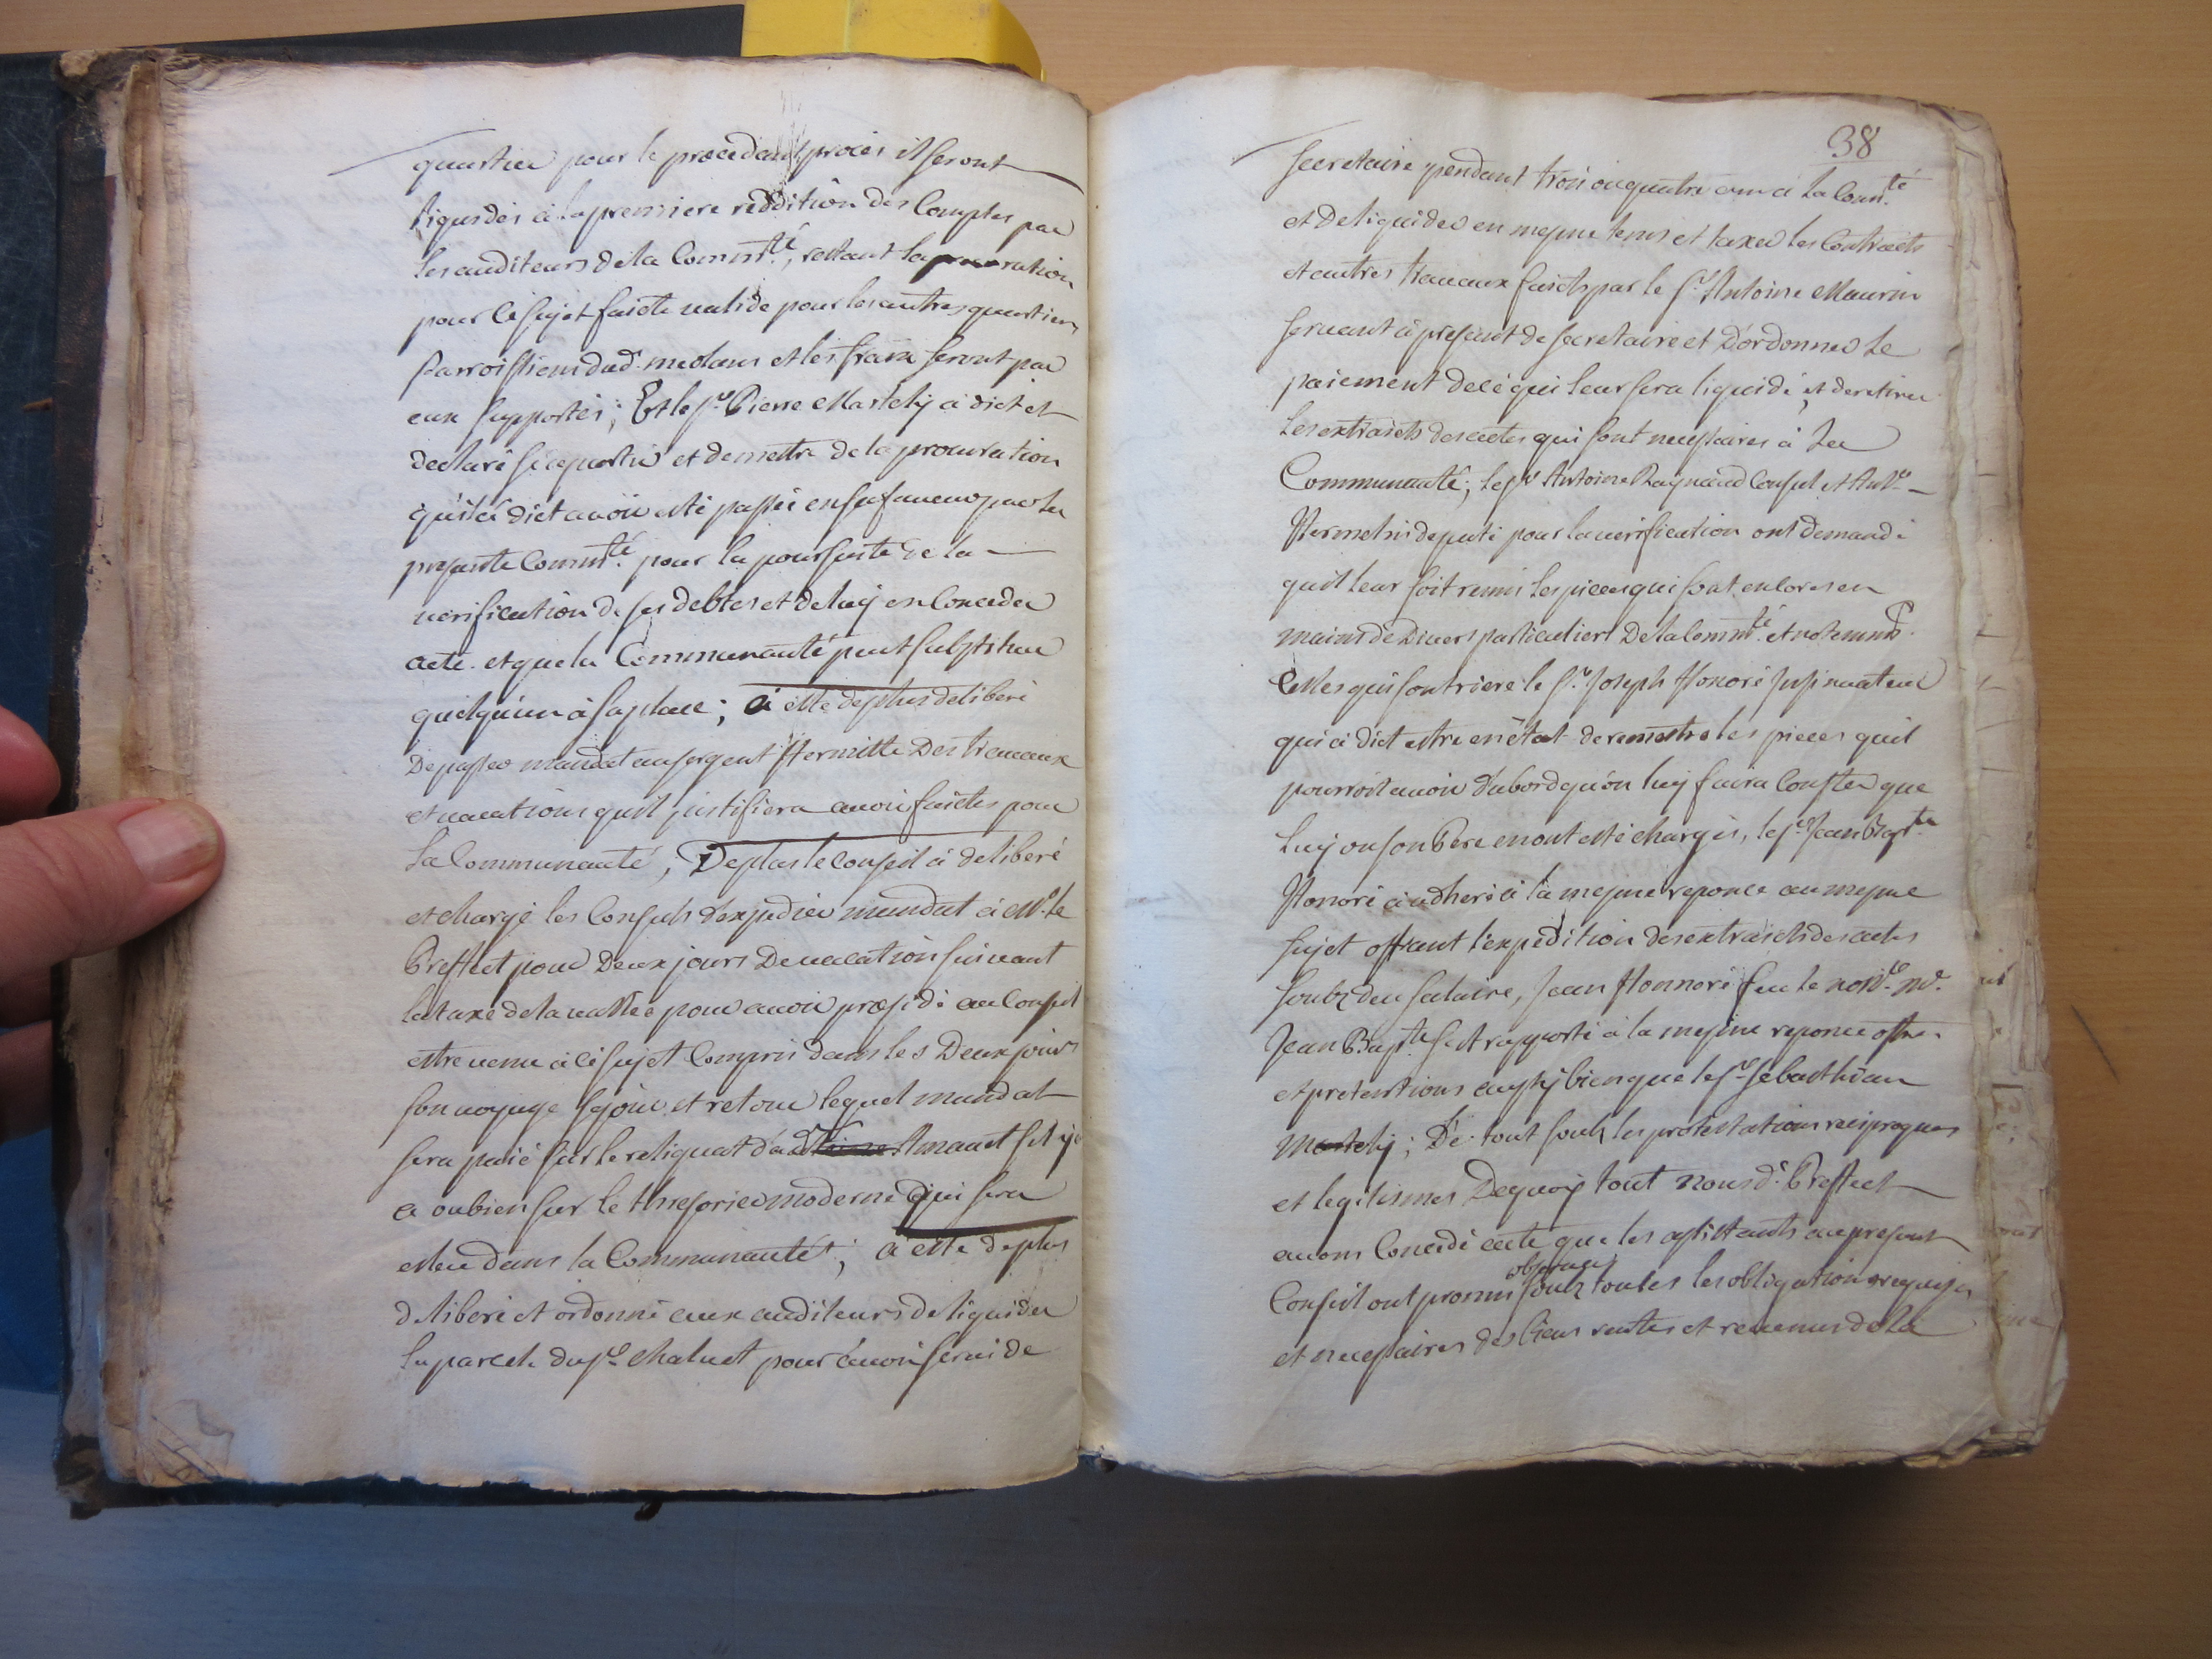 quartier pour le precedant proces il seront
liquidés à la premiere reddition des Comptes par
les auditeurs de la Comm.té, restant la procuration
pour ce sujet faicte valide pour les autres quartiers
Parroissiens dud. meolans et les fraix seront par
eux supportés; Et le s.r Pierre Martely à dict et
declaré se departir et demettre de la procuration
qu'il à dict avoir esté passée en sa faveur par la
presente Comm.té pour la poursuite de la
verification de ses debtes et de luy en Conceder
acte. et que la Communauté peut substituer
quelqu'un à sa place; à esté de plus deliberé
De passer mandat au sergent Hermitte Des travaux
et vacations quil justifiera avoir faictes pour
La Communauté, De plus le conseil à deliberé
et chargé les Consuls d'expedier mandat à Mr. le
Preffect pour Deux jours De vacation suivant
la taxe de la vallée pour avoir presidé au Conseil
estre venu à ce sujet Compris dans les Deux jours
son voyage sejour et retour lequel mandat
sera paié sur le reliquat d'ad Amauet s'il y
a ou bien sur le thresorier moderne qui sera
esleu dans la Communauté; à esté de plus
deliberé et ordonné aux auditeurs de liquider
la parcele du s.r Chaluet pour avoir servi de
38
secretaire pendant trois ou quatre ans à La Com.té
et De liquider en mesme tems et taxer les Contracts
et autres travaux faicts par le s.r Antoine Maurin
servant à present de secretaire et D'ordonner Le
paiement de ce qui leur sera liquidé, et de retirer
Les extraicts des actes qui sont necessaires à La
Communauté; le s.r Antoine Raynaud Consul et Ant.e
Hermelin deputé pour la verification ont Demandé
quil leur soit remis les pieces qui sont encores en
mains de Divers particuliers De la Comm.té et notemm.t
Celles qui sont riere le s.r Joseph Honoré Insinuateur
qui à dict estre en état de remettre les pieces quil
pourroit avoir d'abord qu'on luy faira Conster que
Luy ou son Pere en ont esté chargés, le s.r Jean Bapt.te
Honoré à adheré à la mesme reponce au mesme
sujet offrant l'expedition des extraicts des actes
soubz deu salaire, Jean Honnoré feu le no.re M.e
Jean Bap.te s'est rapporté à la mesme reponce offre
et pretentions aussy bien que le s.r Sebasthian
Martely; De tout soubz les protestations reciproques
et legitismes Dequoy tout nous d. Preffect
avons Concedé acte que les assistants au present
Conseil ont promis observer soubz toutes les obligations requises
et necessaires des biens rentes et revenus de la